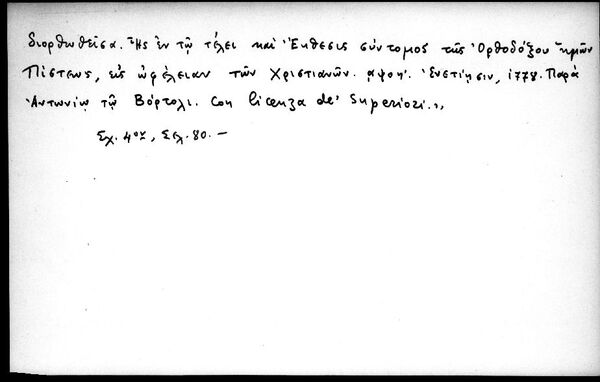 διορθωθεῖσα. Ἧς ἐν τῷ τέλει καὶ Ἔκθεσις σύντομος τῆς Ὀρθοδόξου ἡμῶν
Πίστεως, εἰς ὠφέλειαν τῶν Χριστιανῶν. ͵αψοη΄. Ἐνετίῃσιν, 1778. Παρὰ
Ἀντωνίῳ τῷ Βόρτολι. Con licenza de' Superiori.,,
Σχ. 4ον, Σελ. 80. —